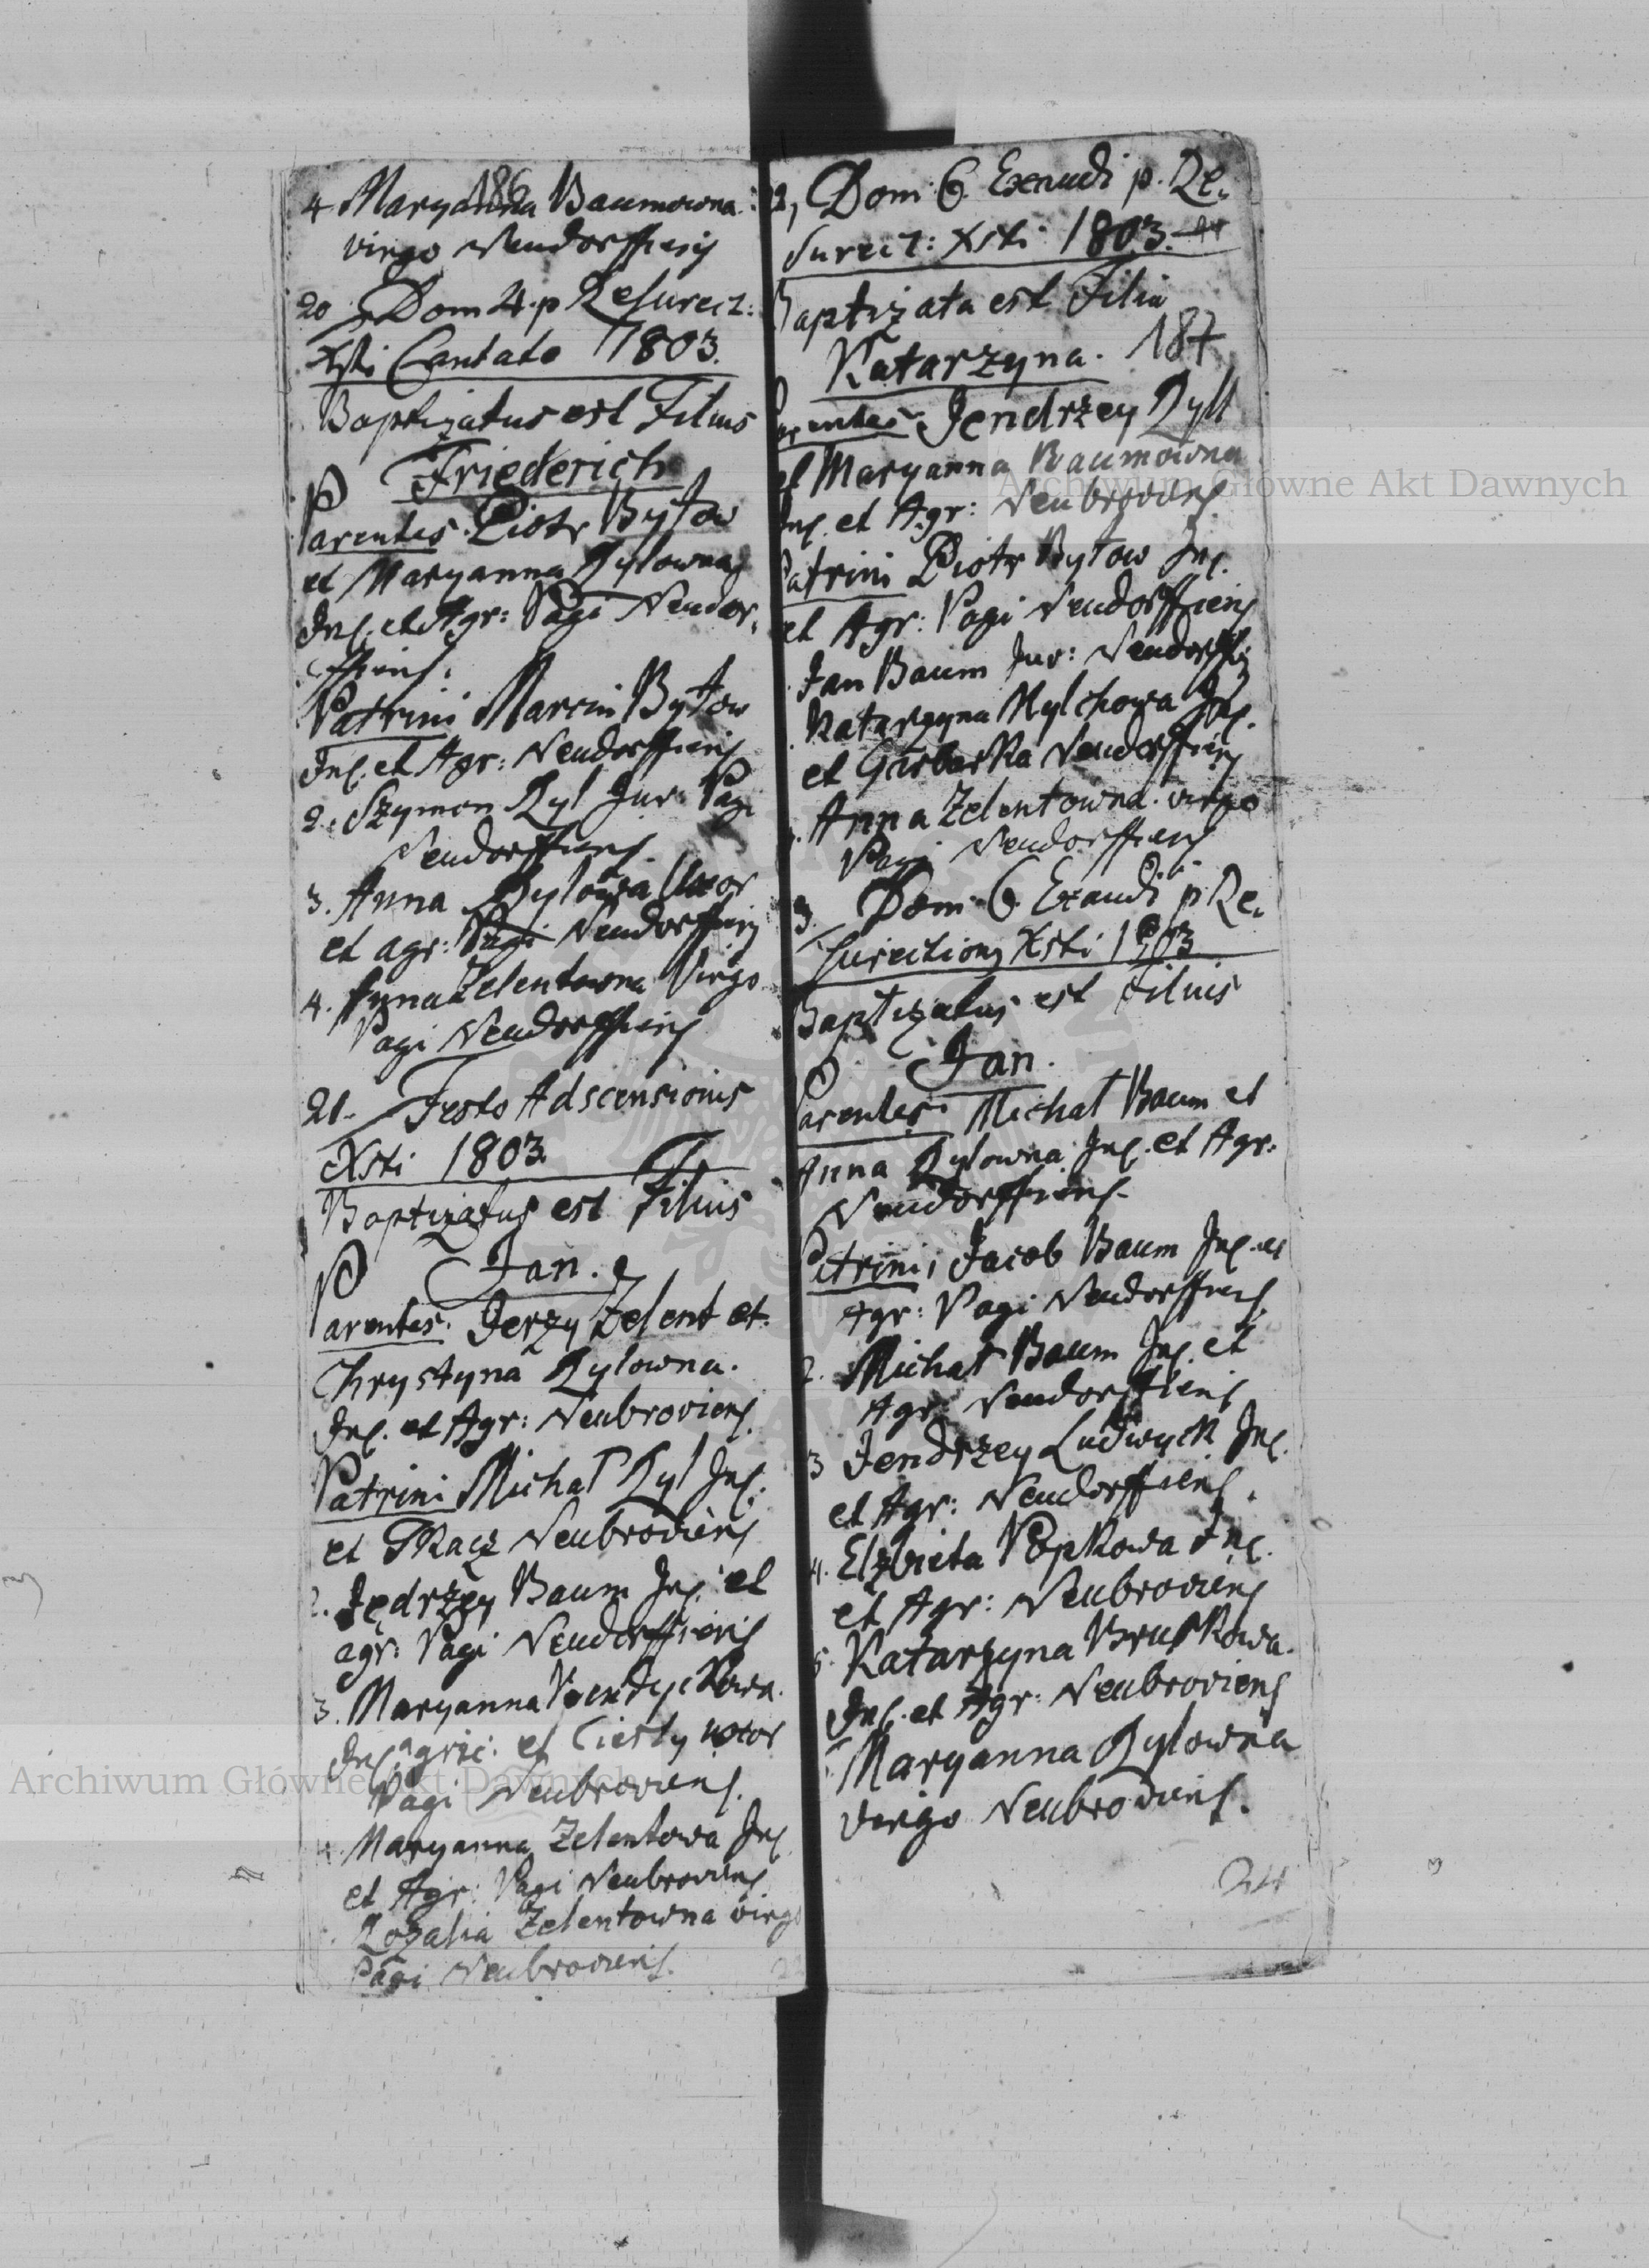 186
4 Maryanna Baumowna.
virgo Neudorffiens
20 Dom 4. p Resurect:
Xsti Cantate 1803.
Baptizatus est Filius
Friederich
Parentes. Piotr Bytow
et Maryanna Rylowna
Inc. et Agr: Pagi Neudor,
ffiens.
Patrini Marcin Bytow
Inc. et Agr: Neudorffiens
2. Szymon Ryl Juv: Pagi
Neudorffiens.
3. Anna Rylowa Uxor
et agr: Pagi Neudorffiens
4. Anna Zelentowna Virgo
Pagi Neudorffiens
21. Festo Adscensionis
Xsti 1803.
Baptizatus est Filius
Jan.
Parentes. Jerzy Zelent et
Chrystyna Rylowna.
Inc. et Agr: Neubroviens.
Patrini Michał Ryl Inc.
et Tkacz Neubroviens
2. Jędrzey Baum Inc. et
agr: Pagi Neudorffiens
3. Maryanna
Inc. agric. et Ciesly uxor
Pagi Neubroviens.
4. Maryanna Zelentowa Inc
et Agr: Pagi Neubroviens
Rozalia Zelentowna virgo
Pagi Neubroviens.
22, Dom: 6. Exaudi p. Re,
surect: Xsti 1803.
Baptizata est Filia
Katarzyna. 187
Parentes. Jendrzey Ryll
et Maryanna Baumowna
Inc. et Agr: Neubroviens.
Patrini Piotr Bytow Inc.
et Agr: Pagi Neudorffiens
Jan Baum Juv: Neudorffis
Katarzyna Mylchowa Inc.
et Garbarka Neudorffiens
Anna Zelentowna. virgo
Pagi Neudorffiens
3. Dom. 6. Exaudi p. Re,
surections Xsti 1803
Baptizatus est Filius
Jan.
Parentes. Michał Baum et
Anna Rylowna Inc. et Agr:
Neudorffiens.
Patrini, Jacob Baum Inc. et
Agr: Pagi Neudorffiens.
2. Michał Baum Inc. et
Agr: Neudorffiens
3 Jendrzey Ludwyck Inc.
et Agr: Neudorffiens.
4. Elzbieta Popkowa Inc.
et Agr: Neubroviens
5. Katarzyna Bruskowa.
Inc. et Agr: Neubroviens
Maryanna Rylowna
virgo Neubroviens.
24
Archiwum Główne Akt Dawnych
Archiwum Główne Akt Dawnych